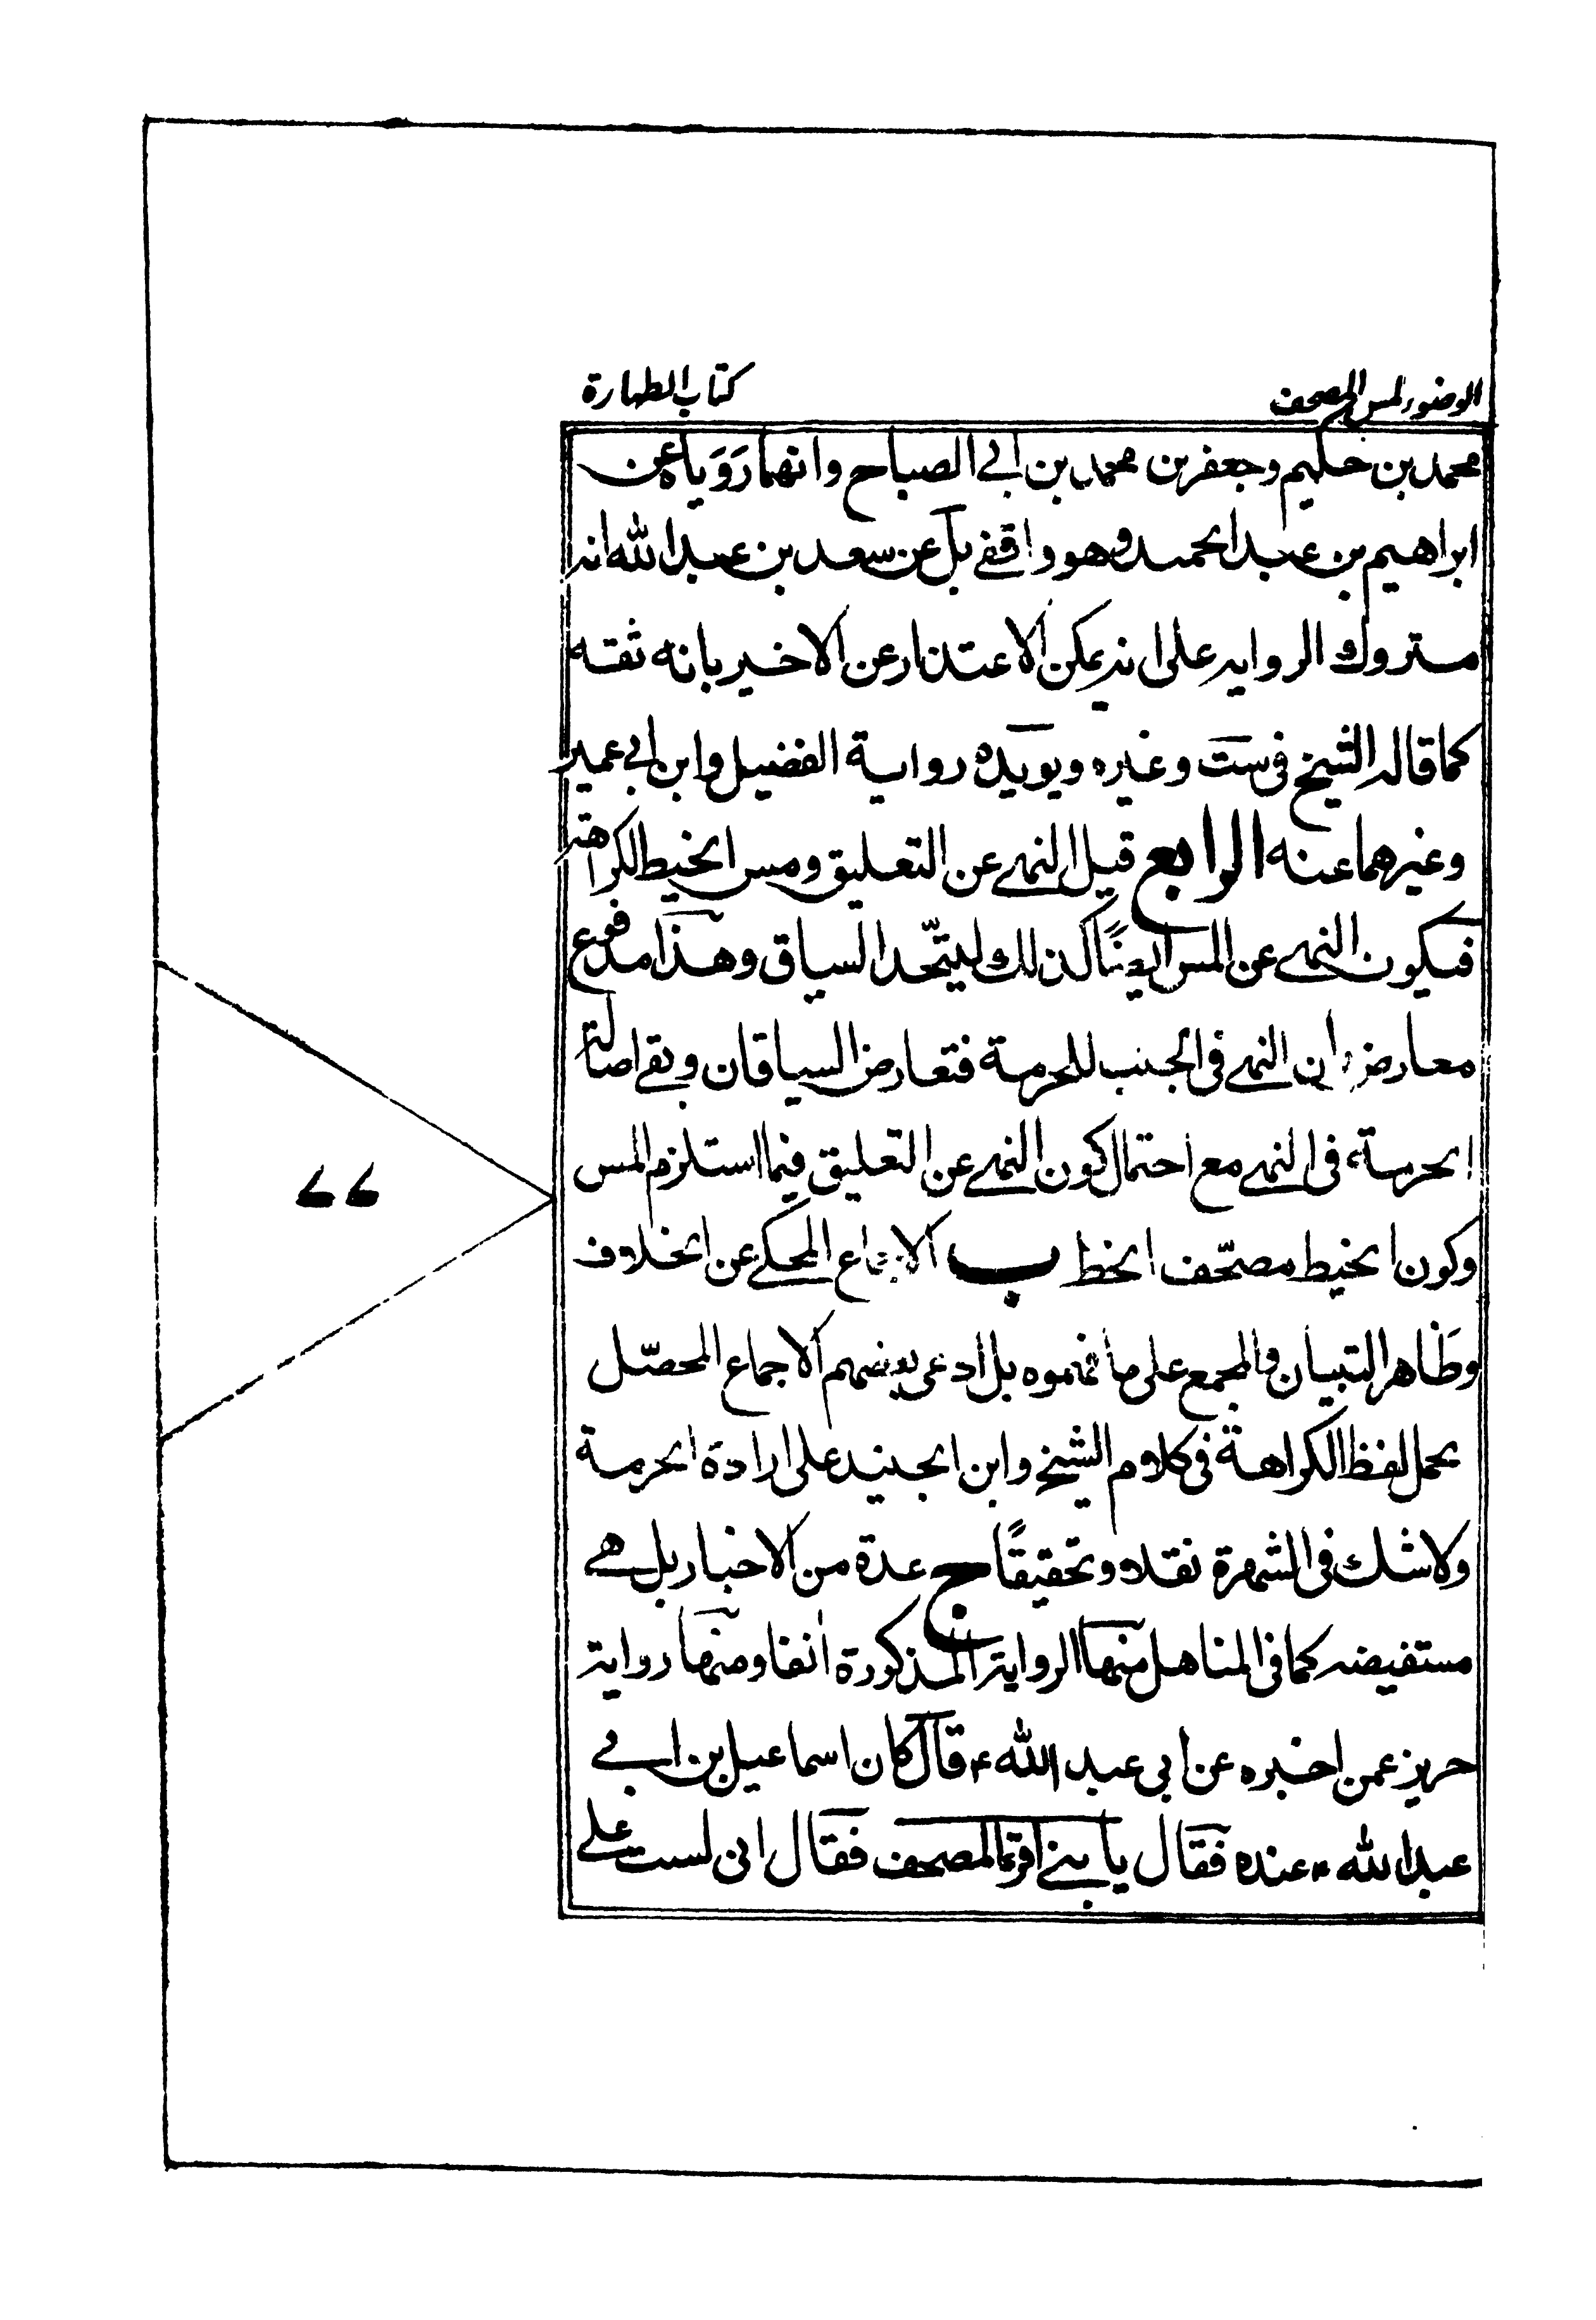 الوضوء لمس المصحف
كتاب الطهارة
محمد بن حكيم وجعفر بن محمد بن ابي الصباح وانهما رَوَياه عن
ابراهيم بن عبد الحميد وهو واقفي بل عن سعد بن عبد الله انه
متروك الروايه على انه يمكن الاعتذار عن الاخير بانه ثقه
كما قاله الشيخ فى ست وغيره ويويده رواية الفضيل وابن ابي عمير
وغيرهما عنه الرابع قيل النهي عن التعليق ومس الخيط للكراهة
فيكون النهي عن المس ايضًا كذلك ليتّحد السياق وهذا مدفوع
معارض بان النهي فى الجنب للحرمة فتعارض السياقان وبقى اصالة
الحرمة فى النهي مع احتمال كون النهي عن التعليق فيما استلزم المس
وكون الخيط مصحّف الخط ب الاجماع المحكي عن الخلاف
وظاهر التبيان والمجمع على ما فهموه بل ادعى بعضهم الاجماع المحصّل
بحمل لفظ الكراهة فى كلام الشيخ وابن الجنيد على ارادة الحرمة
ولا شك فى الشهرة نقلا وتحقيقًا ج عدة من الاخبار بل هي
مستفيضه كما فى المناهل منها الرواية المذكورة انفا ومنها رواية
حريز عمن اخبره عن ابي عبد الله ع قال كان اسماعيل بن ابي
عبد الله ع عنده فقال يا بني اقرء المصحف فقال انى لست على
۶۶